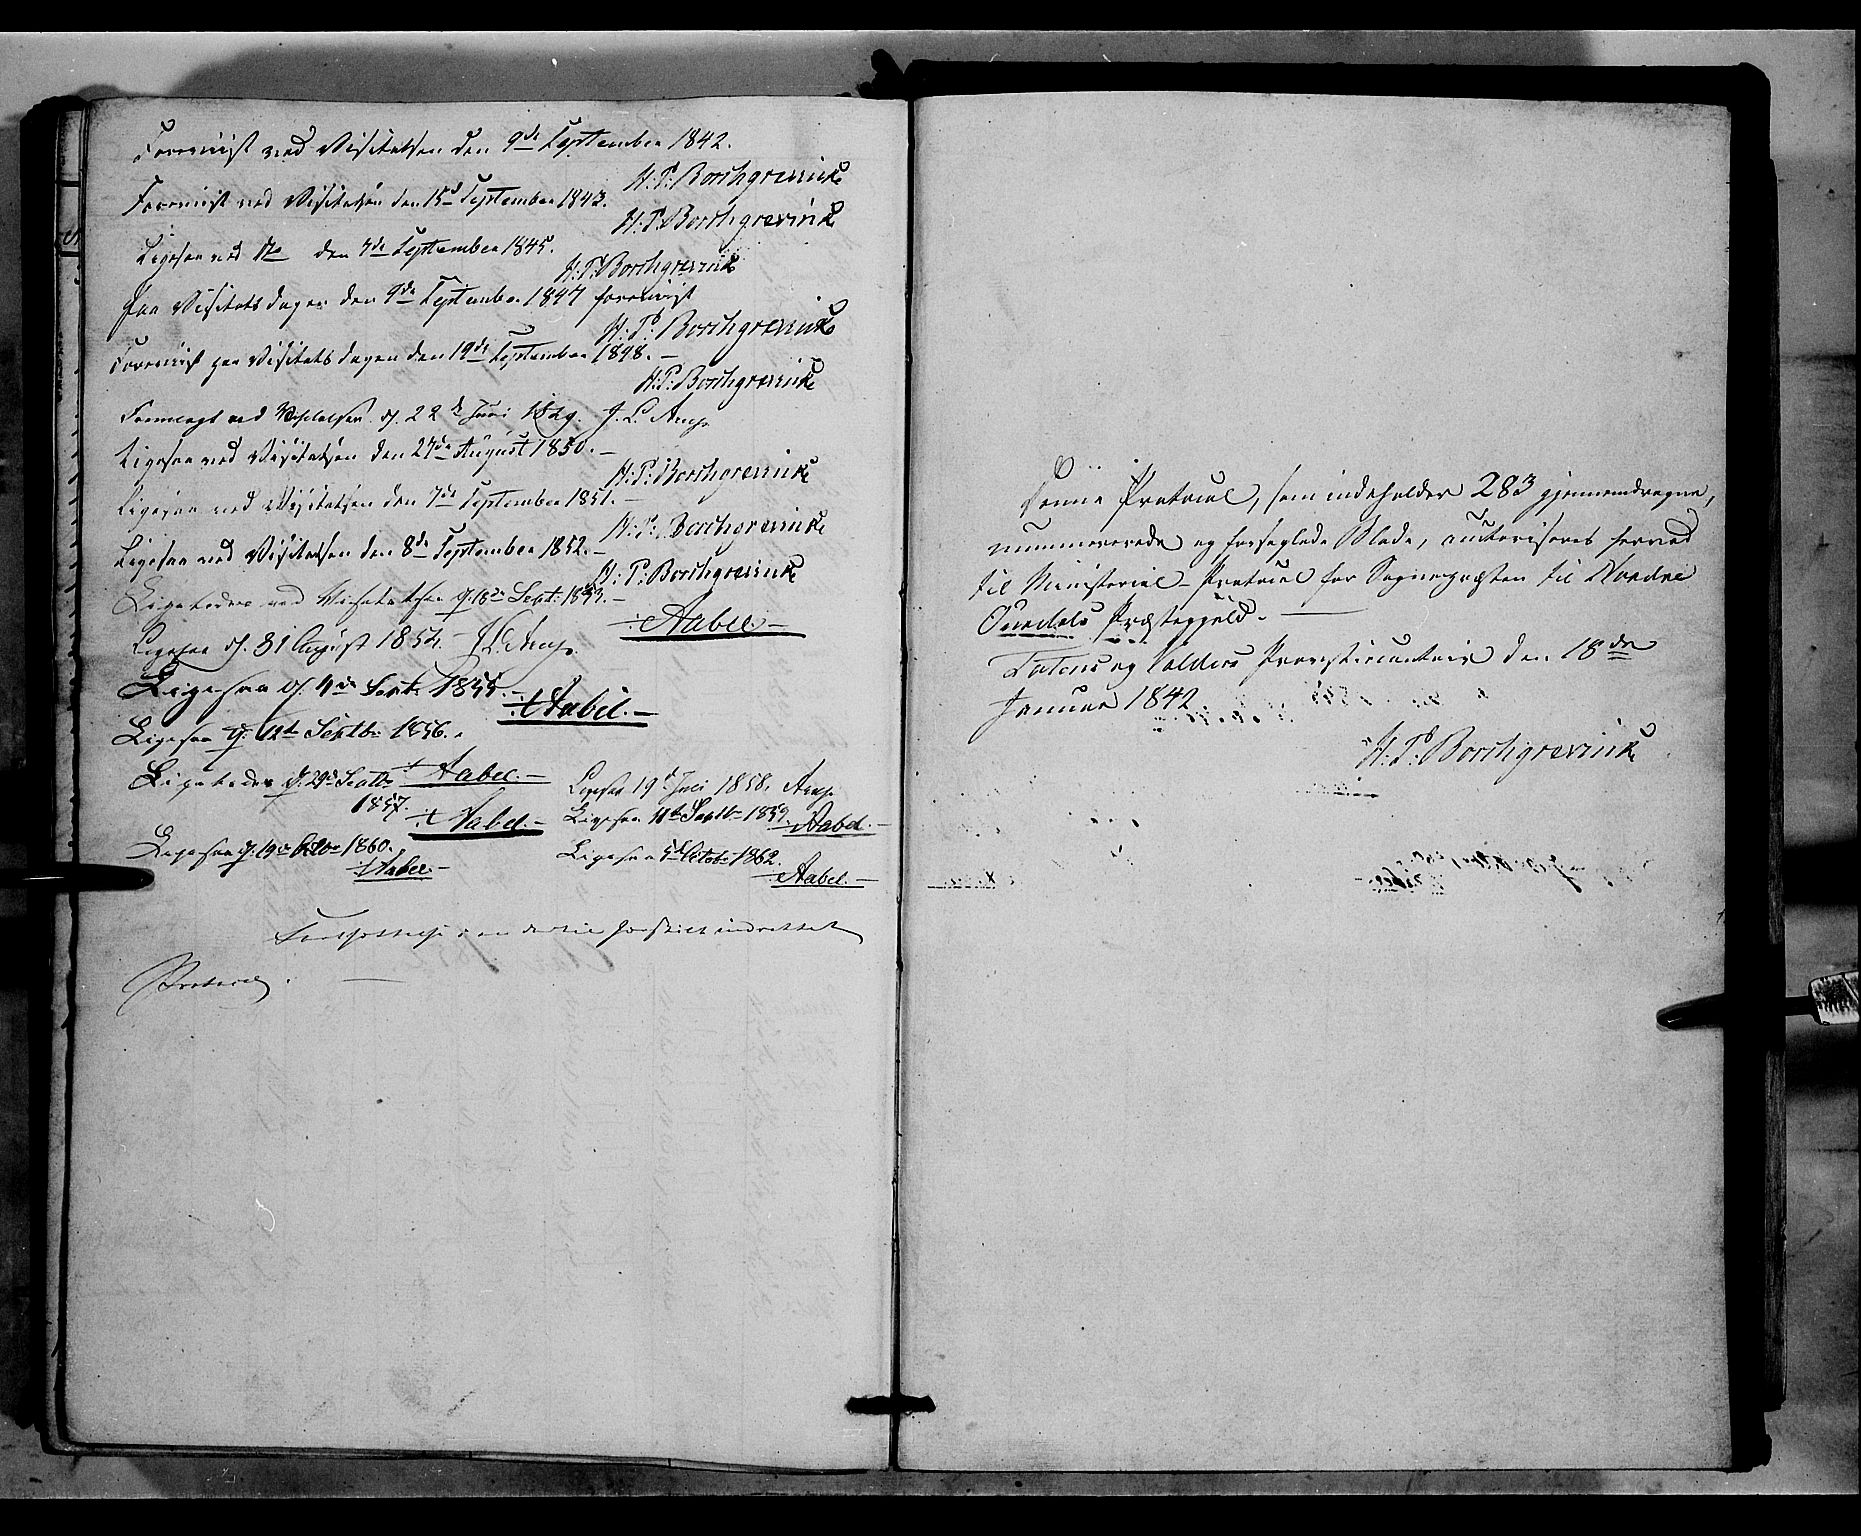 Foreviist ved Visitatsen den 9de September 1842.
H. P. Borchgrevink
Foreviist ved Visitatsen den 15de September 1843.
H. P. Borchgrevink
Ligesaa ved Do den 7de September 1845.
H. P. Borchgrevink
Paa Visitatsdagen den 9de September 1847 foreviist
H. P. Borchgrevink
Foreviist paa Visitatsdagen den 19de September 1848. –
H. P. Borchgrevink
Fremlagt ved Visitatsen d. 22de Juni 1849. J. L. Arup.
Ligesaa ved Visitatsen den 27de August 1850. –
H. P. Borchgrevink
Ligesaa ved Visitatsen den 7de September 1851. –
H. P. Borchgrevink
Ligesaa ved Visitatsen den 8de September 1852. –
H. P. Borchgrevink
Ligeledes ved Visitatsen d. 18de Septr 1853. –
Aabel. –
Ligesaa d. 31 August 1854. – J. L. Arup.
Ligesaa d. 4de Septr 1855. –
Aabel. –
Ligesaa d. 12te Septbr 1856.
Aabel. –
Ligeledes d. 29de Septbr
1857.
Aabel. –
Ligesaa 19de Juli 1858. Arup.
Ligesaa 11te Septbr 1859.
Aabel. –
Ligesaa d. 19de Octbr 1860.
Aabel. –
Ligesaa 5te Octobr 1862.
Aabel. –
Fortsættes i en dertil særskilt indrettet
Protocol. –
Denne Protocol, som indeholder 283 gjennemdragne,
nummererede og forseglede Blade, autoriseres herved
til Ministerial-Protocol for Sognepræsten til Nordre
Ourdals Præstegjeld. –
Totens og Valders Provsticontoir den 18de
Januar 1842
H. P. Borchgrevink